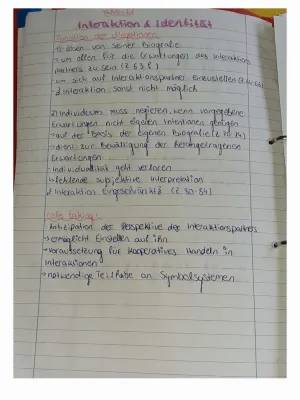 Interaktion & Identität
Funktion der
1) lösen von seiner Biografie
→ um offen für die Erwartungen des Interaktions
partners zu sein (Z. 6 8)
→ um sich auf Interaktionspartner einzustellen
Interaktion sonst nicht möglich
2) Individuum muss negieren, wenn vorgegebene
Erwartungen nicht eigenen Intentionen genügen
→ auf der Basis der eigenen Biografie
→ dient zur Bewältigung der
Erwartungen
→ Individualität geht verloren
→ fehlende subjektive Interpretation
Interaktion Eingeschränkt (Z. 30-34)
role taking:
Antizipation der Perspektive des Interaktionspartners
→ ermöglicht Einstellen auf ihn
→ Voraussetzung für kooperatives Handeln in
Interaktionen
→ notwendige Teilhabe an Symbolsystemen